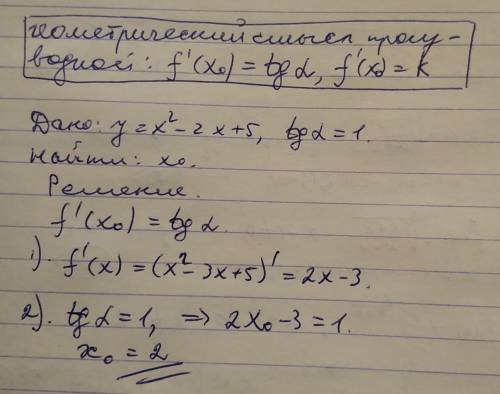 геометрический смысл произ-
водной: f'(x₀) = tg α, f'(x₀) = k
Дано: y = x² - 2x + 5, tg α = 1.
Найти: x₀.
Решение.
f'(x₀) = tg α.
1). f'(x) = (x² - 3x + 5)' = 2x - 3.
2). tg α = 1, ⇒ 2x₀ - 3 = 1.
x₀ = 2